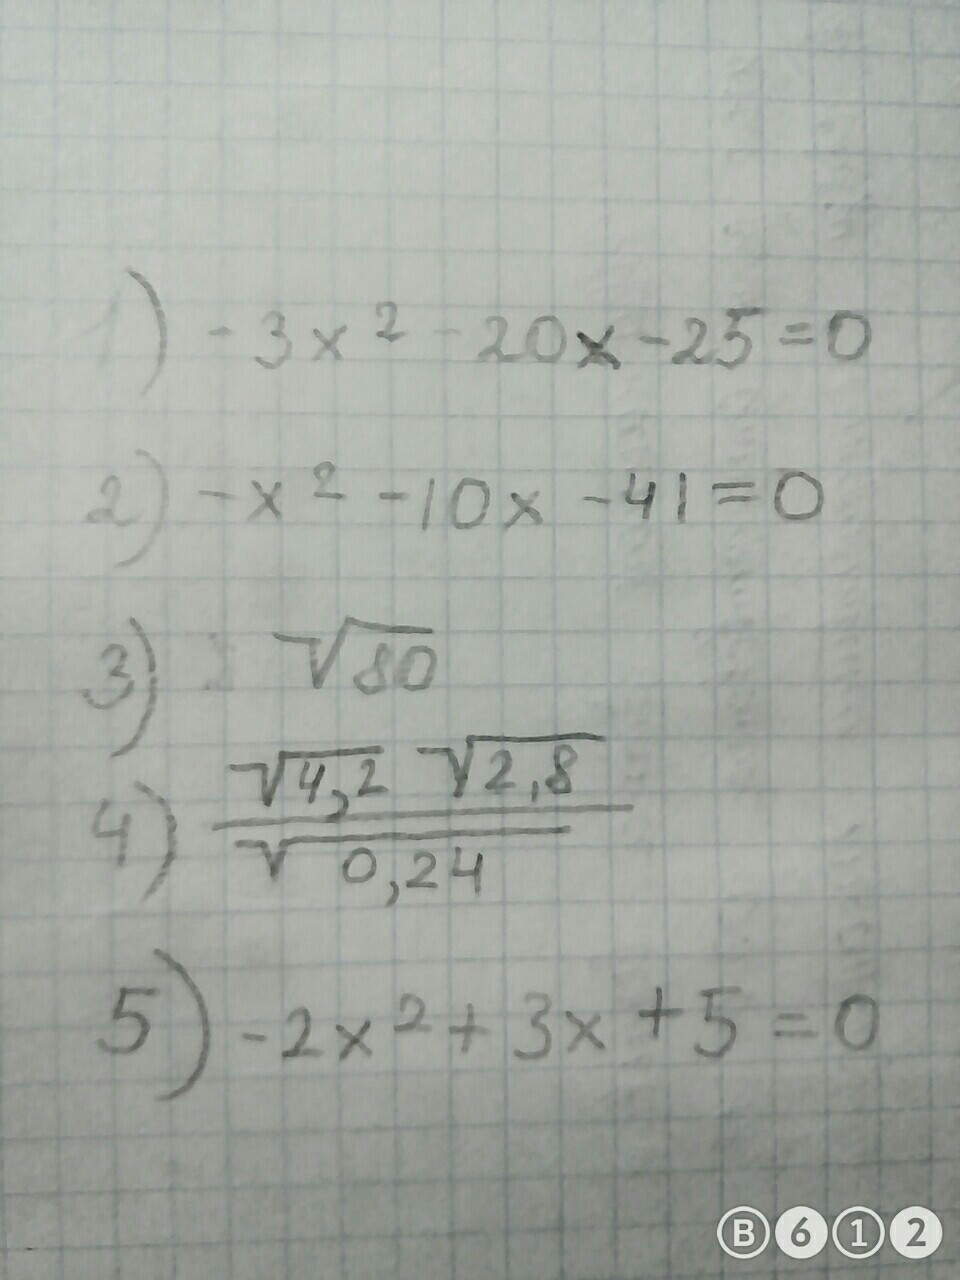 1) -3x² -20x -25=0
2) -x² -10x -41=0
3) √80
4) √4,2 √2,8
√0,24
5) -2x² + 3x +5=0
B612